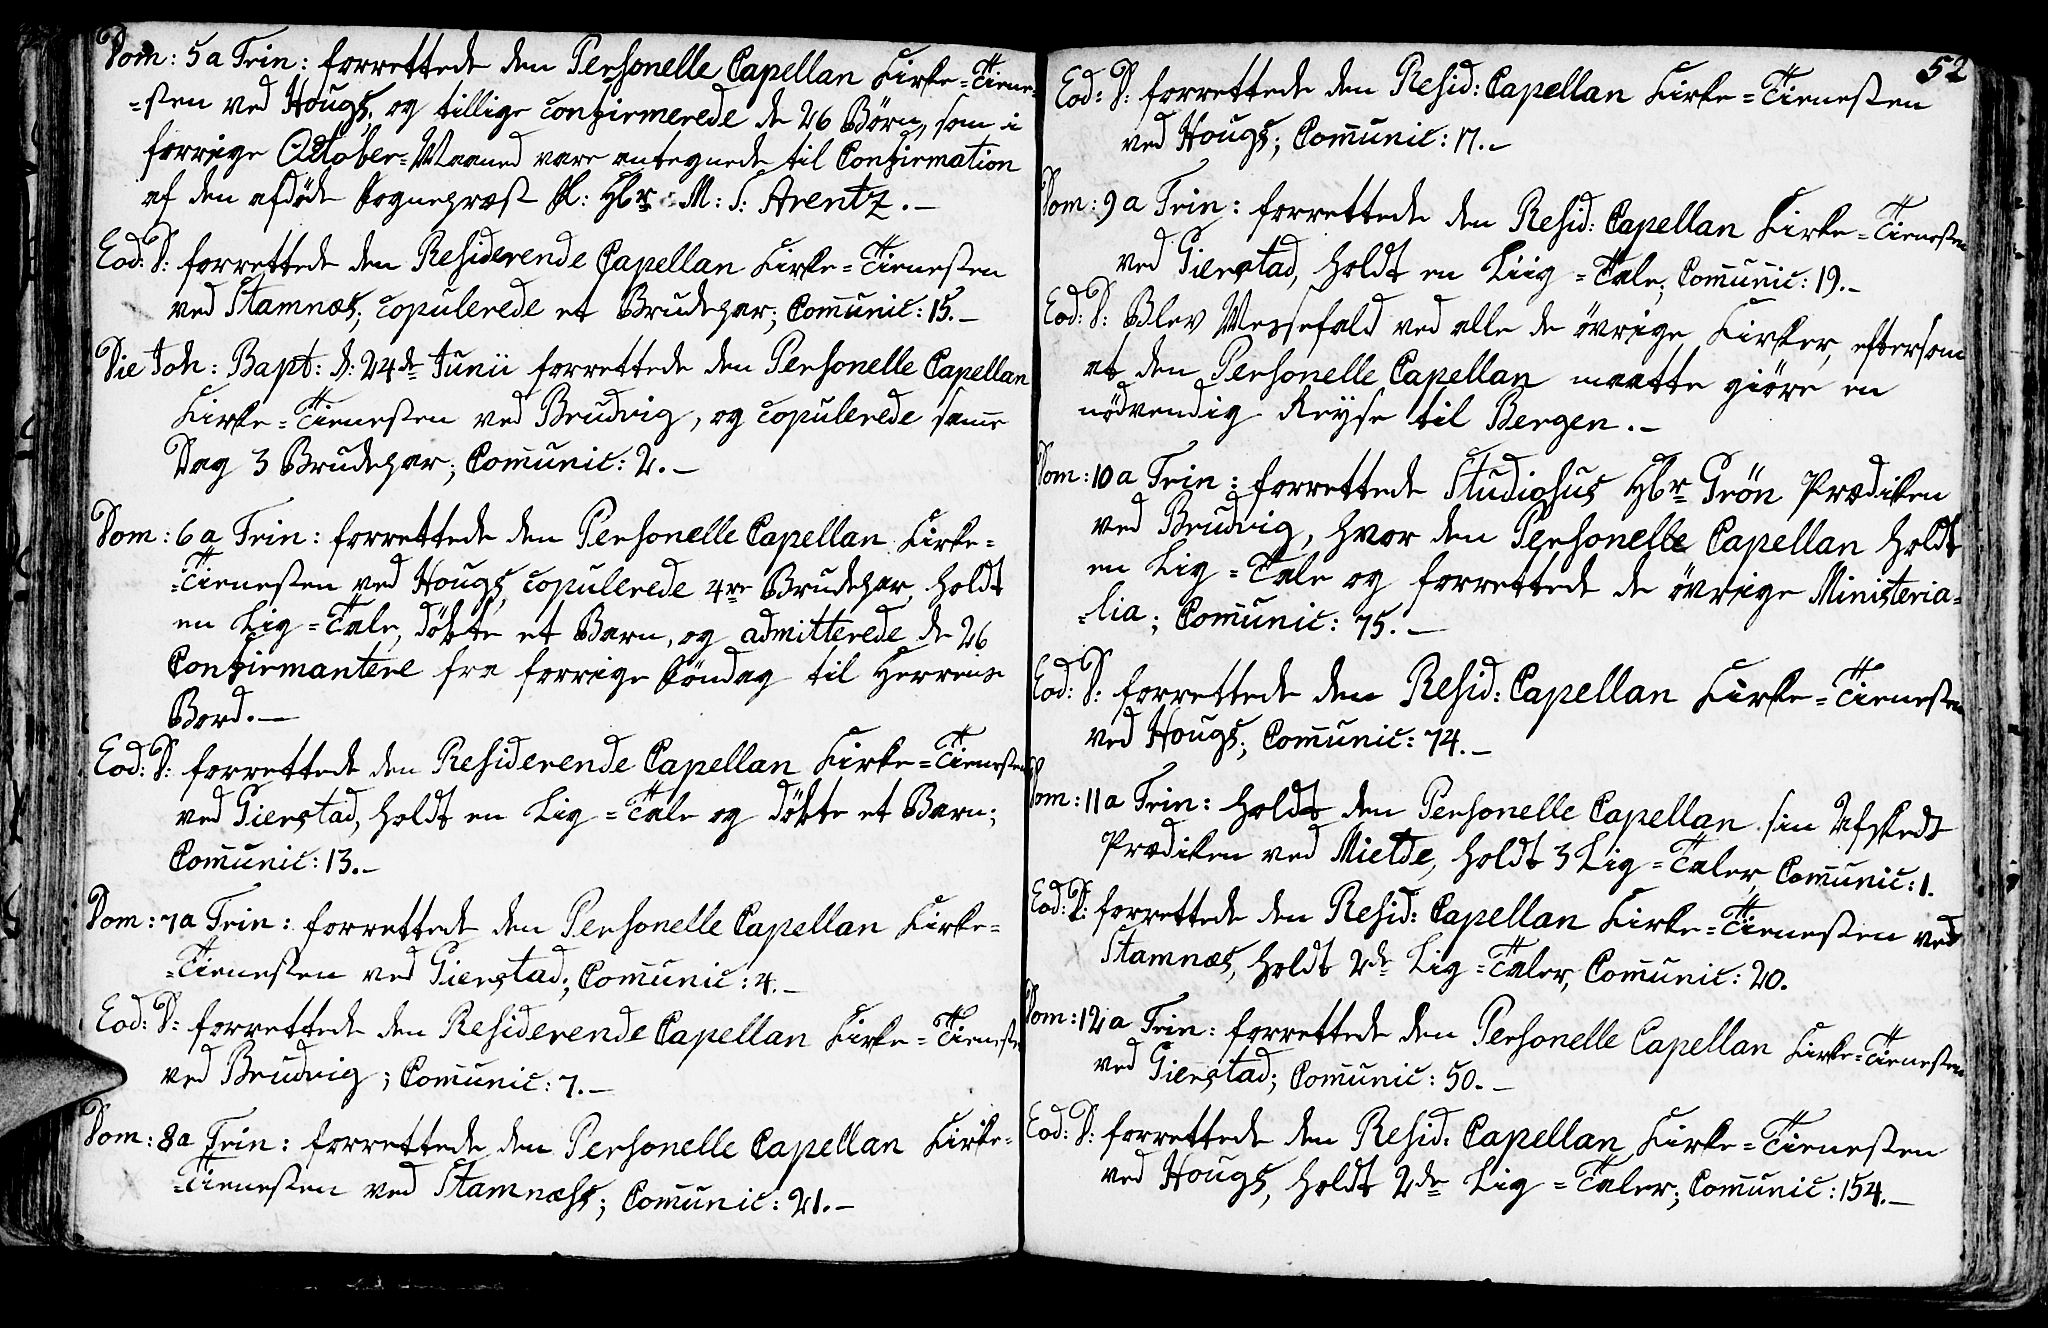 Dom: 5a Trin: forrettede den Personelle Capellan Kirke=Tiene=
=sten ved Hougs, og tillige confirmerede de 26 Børn, som i
forrige October=Maaned vare antegnede til Confirmation
af den afdöde Sognepræst Sl: Hbr: M: S: Arentz.-
Eod: D: forrettede den Residerende Capellan Kirke=Tienesten
ved Stamnæs; copulerede et Brudepar; Comunic: 15.-
Die Joh: Bapt: d: 24de Junii forrettede den Personelle Capellan
Kirke=Tienesten ved Brudvig, og copulerede samme
Dag 3 Brudepar; Comunic: 2.-
Dom: 6a Trin: forrettede den Personelle Capellan Kirke=
=Tienesten ved Hougs, copulerede 4re Brudepar, holdt
en Lig=Tale, döbte et Barn, og admitterede de 26
Confirmantere fra forrige Söndag til Herrens
Bord.-
Eod: D: forrettede den Residerende Capellan Kirke=Tienesten
ved Gierstad, holdt en Lig=Tale og döbte et Barn;
Comunic: 13.-
Dom: 7a Trin: forrettede den Personelle Capellan Kirke=
=Tienesten ved Gierstad; Comunic: 4.-
Eod: D: forrettede den Residerende Capellan Kirke=Tieneste
ved Brudvig; Comunic: 7.-
Dom: 8a Trin: forrettede den Personelle Capellan Kirke=
=Tienesten ved Stamnæss; Comunic: 21.-
52
Eod: D: forrettede den Resid: Capellan Kirke=Tienesten
ved Hougs; Comunic: 17.-
Dom: 9a Trin: forrettede den Resid: Capellan Kirke=Tienesten
ved Gierstad, holdt en Liig=Tale; Comunic: 19.-
Eod: D: Blev Messefald ved alle de övrige Kirker, eftersom
at den Personelle Capellan maatte giöre en
nödvendig Reyse til Bergen.-
Dom: 10a Trin: forrettede Studiosus Hbr Grön Prædiken
ved Brudvig, hvor den Personelle Capellan holdt
en Lig=Tale og forrettede de övrige Ministeria=
=lia; Comunic: 75.-
Eod: D: forrettede den Resid: Capellan Kirke=Tienesten
ved Hougs; Comunic: 74.-
Dom: 11a Trin: holdt den Personelle Capellan sin Afskeds
Prædiken ved Mielde, holdt 3 Lig=Taler, Comunic: 1.
Eod: D: forrettede den Resid: Capellan Kirke=Tienesten ved
Stamnæs, holdt 2de Lig=Taler, Comunic: 20.
Dom: 12a Trin: forrettede den Personelle Capellan Kirke=Tienesten
ved Gierstad; Comunic: 50.-
Eod: D: forrettede den Resid: Capellan Kirke=Tienesten
ved Hougs, holdt 2de Lig=Taler; Comunic: 154.-